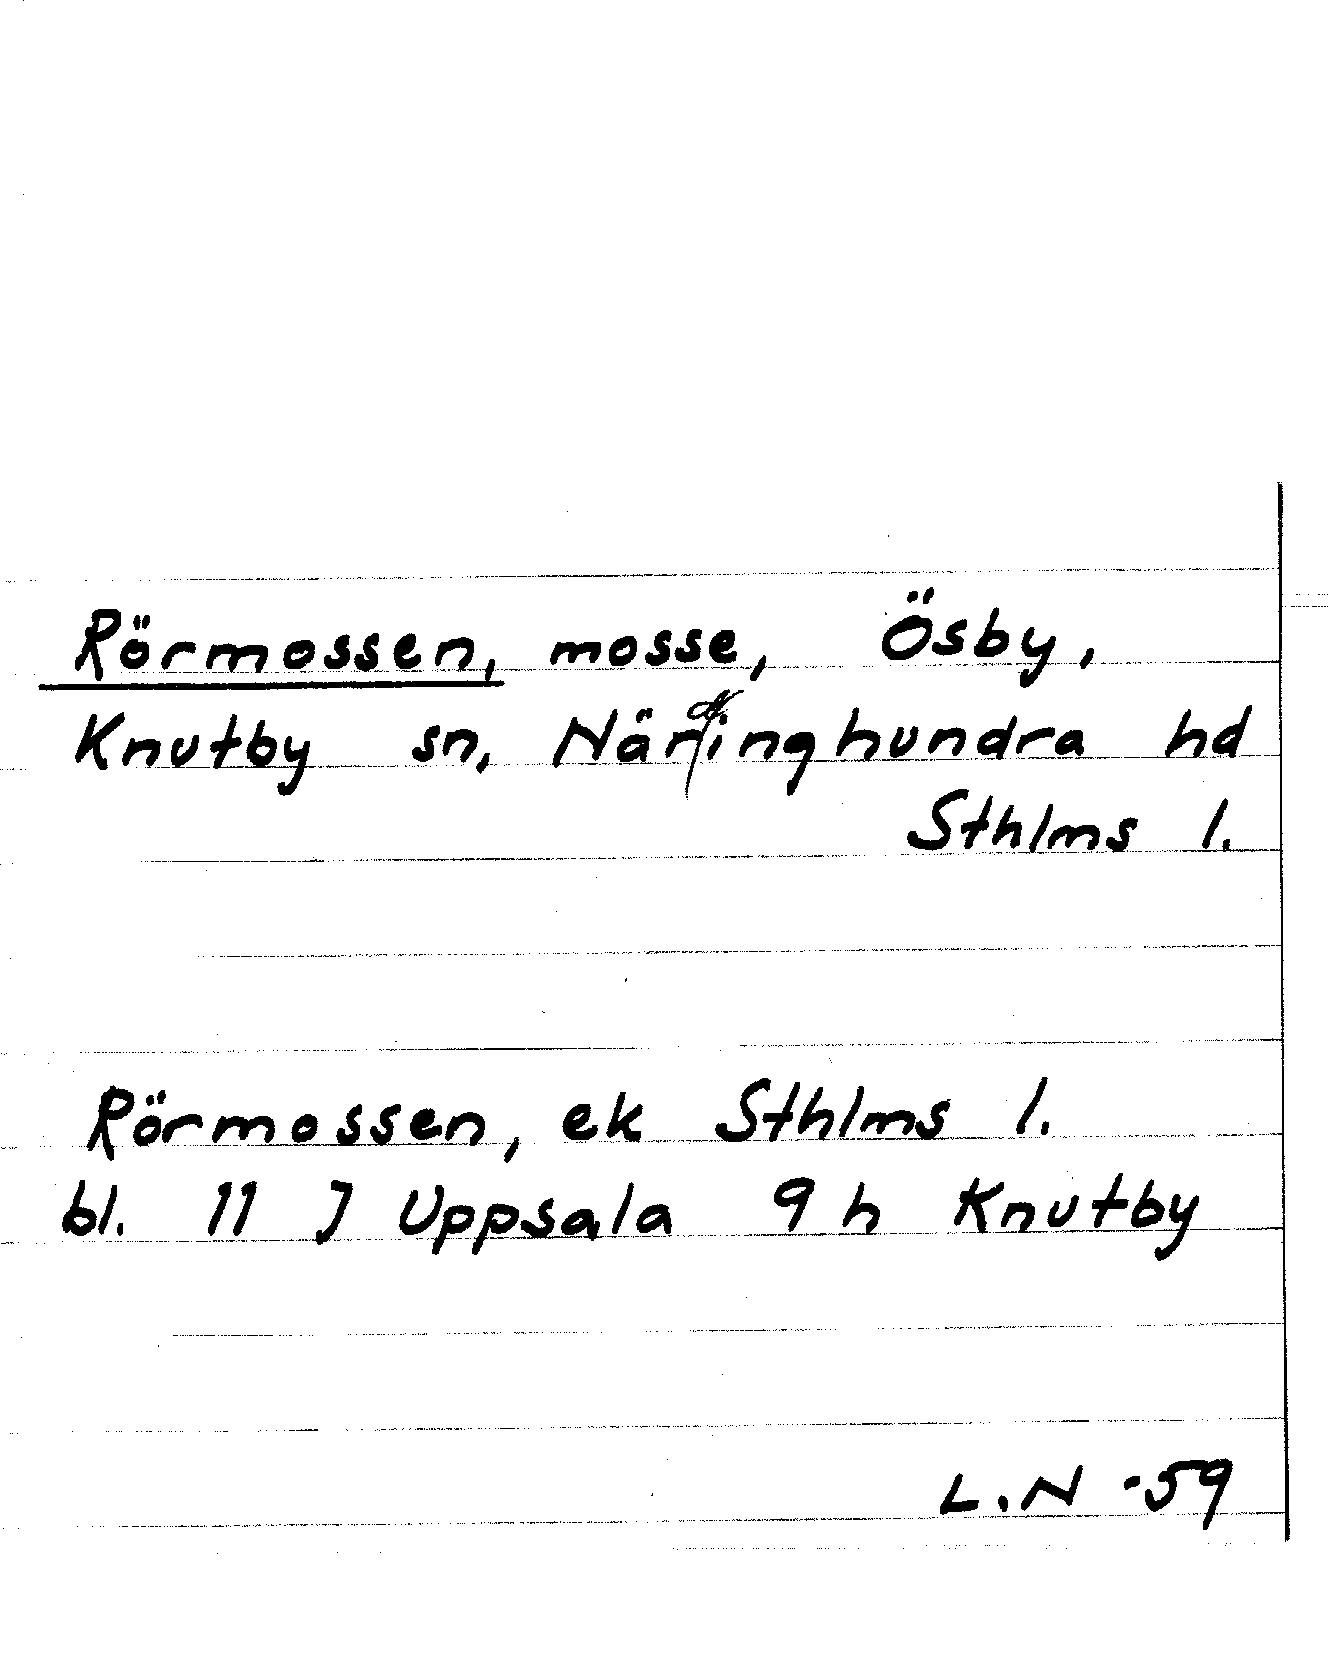 Rörmossen, mosse, Ösby,
Knutby sn, Närdinghundra hd
Sthlms l.
Rörmossen, ek Sthlms l.
bl. 11 J Uppsala 9 h Knutby
L.N -59